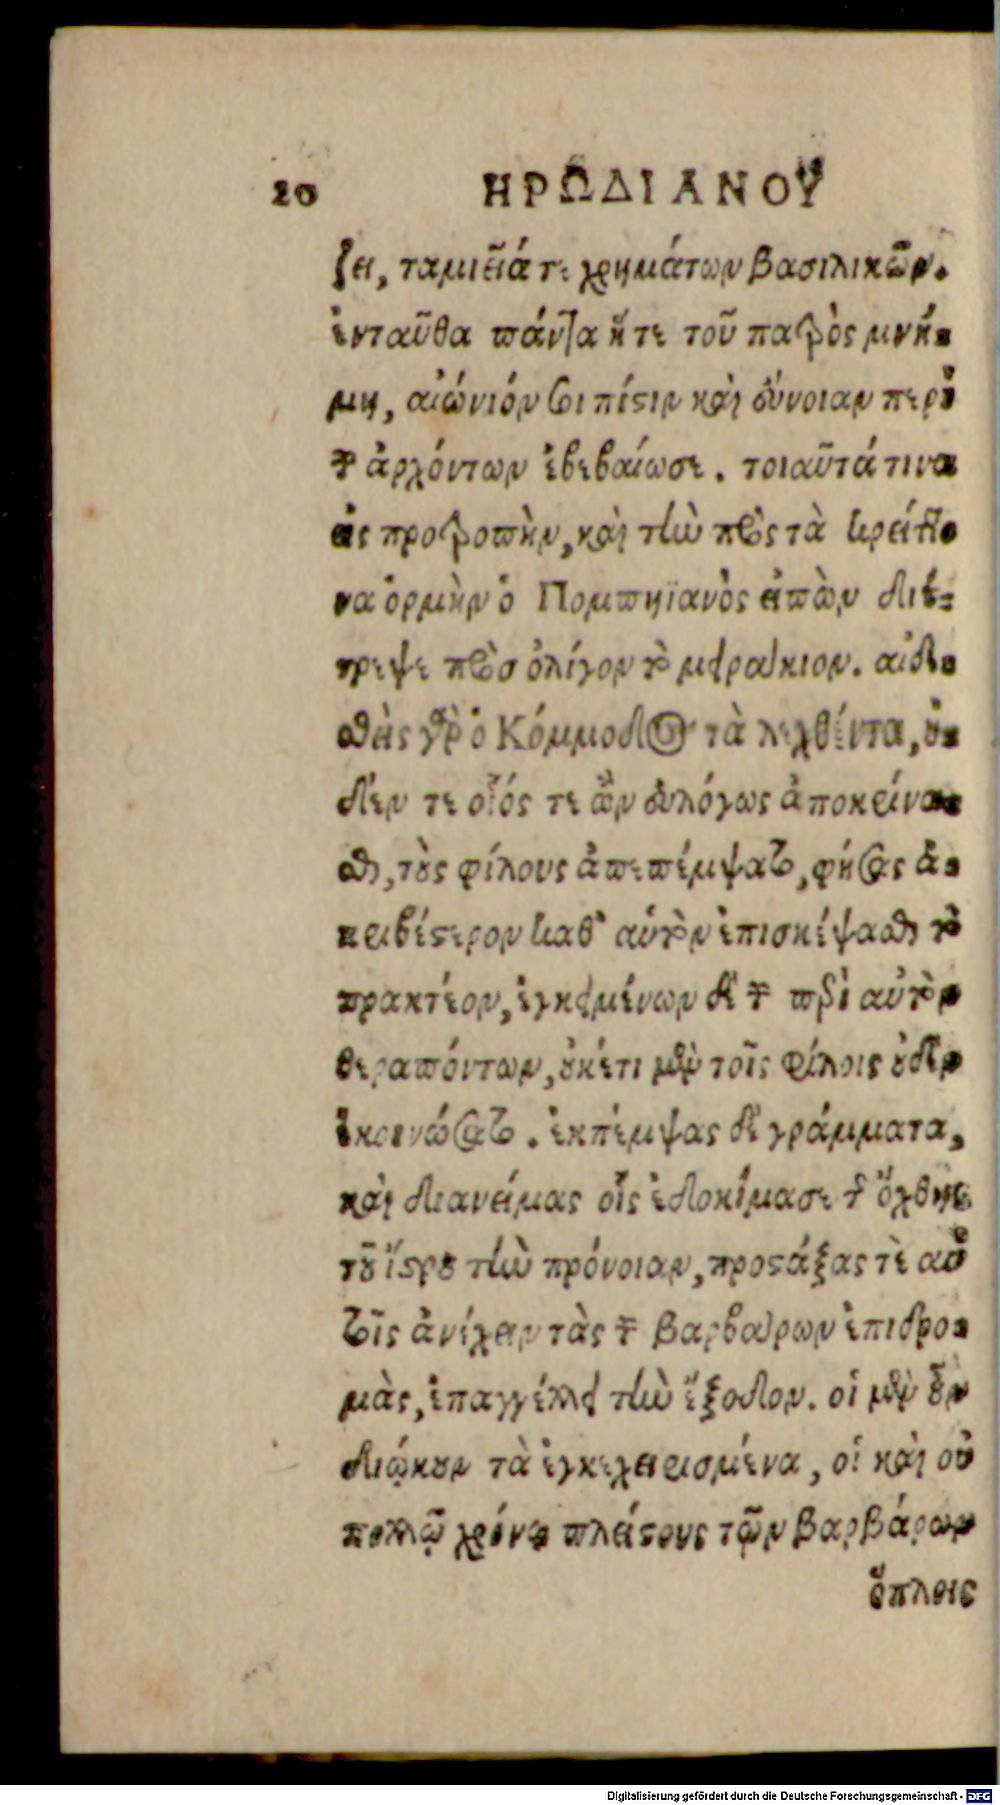 20 ΗΡΩΔΙΑΝΟΥ
ζει, ταμιεῖά τε χρημάτων βασιλικῶν.
ἐνταῦθα πάντα ἥ τε τοῦ πατρὸς μνή-
μη, αἰώνιόν σοι πίστιν καὶ εὔνοιαν περὶ
τῶν ἀρχόντων ἐβεβαίωσε. τοιαῦτά τινα
εἰς προτροπὴν, καὶ τὴν πρὸς τὰ κρείττο
να ὁρμὴν ὁ Πομπηϊανὸς εἰπὼν διέ-
τρεψε πρὸσ ὀλίγον τὸ μειράκιον. αἰδε-
σθεὶς γὰρ ὁ Κόμμοδος τὰ λεχθέντα, οὐ-
δέν τε οἷός τε ὢν εὐλόγως ἀποκρίνα-
σθαι, τοὺς φίλους ἀπεπέμψατο, φήσας ἀ-
κριβέστερον καθ' αὑτὸν ἐπισκέψασθαι τὸ
πρακτέον, ἐγκειμένων δὲ τῶν περὶ αὐτὸν
θεραπόντων, οὐκέτι μὲν τοῖς φίλοις οὐδὲν
ἐκοινώσατο. ἐκπέμψας δὲ γράμματα,
καὶ διανείμας οἷς ἐδοκίμασε τῆς ὄχθης
τοῦ ἴστρου τὴν πρόνοιαν, προστάξας τὲ αὐ
τοῖς ἀνέχειν τὰς τῶν βαρβάρων ἐπιδρο-
μὰς, ἐπαγγέλλει τὴν ἔξοδον. οἱ μὲν οὖν
διῴκουν τὰ ἐγκεχειρισμένα, οἳ καὶ οὐ
πολλῷ χρόνῳ πλείστους τῶν βαρβάρων
ὅπλοις
Digitalisierung gefördert durch die Deutsche Forschungsgemeinschaft - DFG